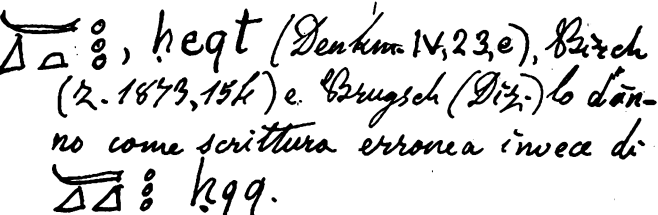 𓎛𓈎𓏏𓏥, ḥeqt (Denkm. IV, 23, e), Birch
(Z. 1873, 154) e Brugsch (Diz.) lo dan-
no come scrittura erronea invece di
ḥqq.